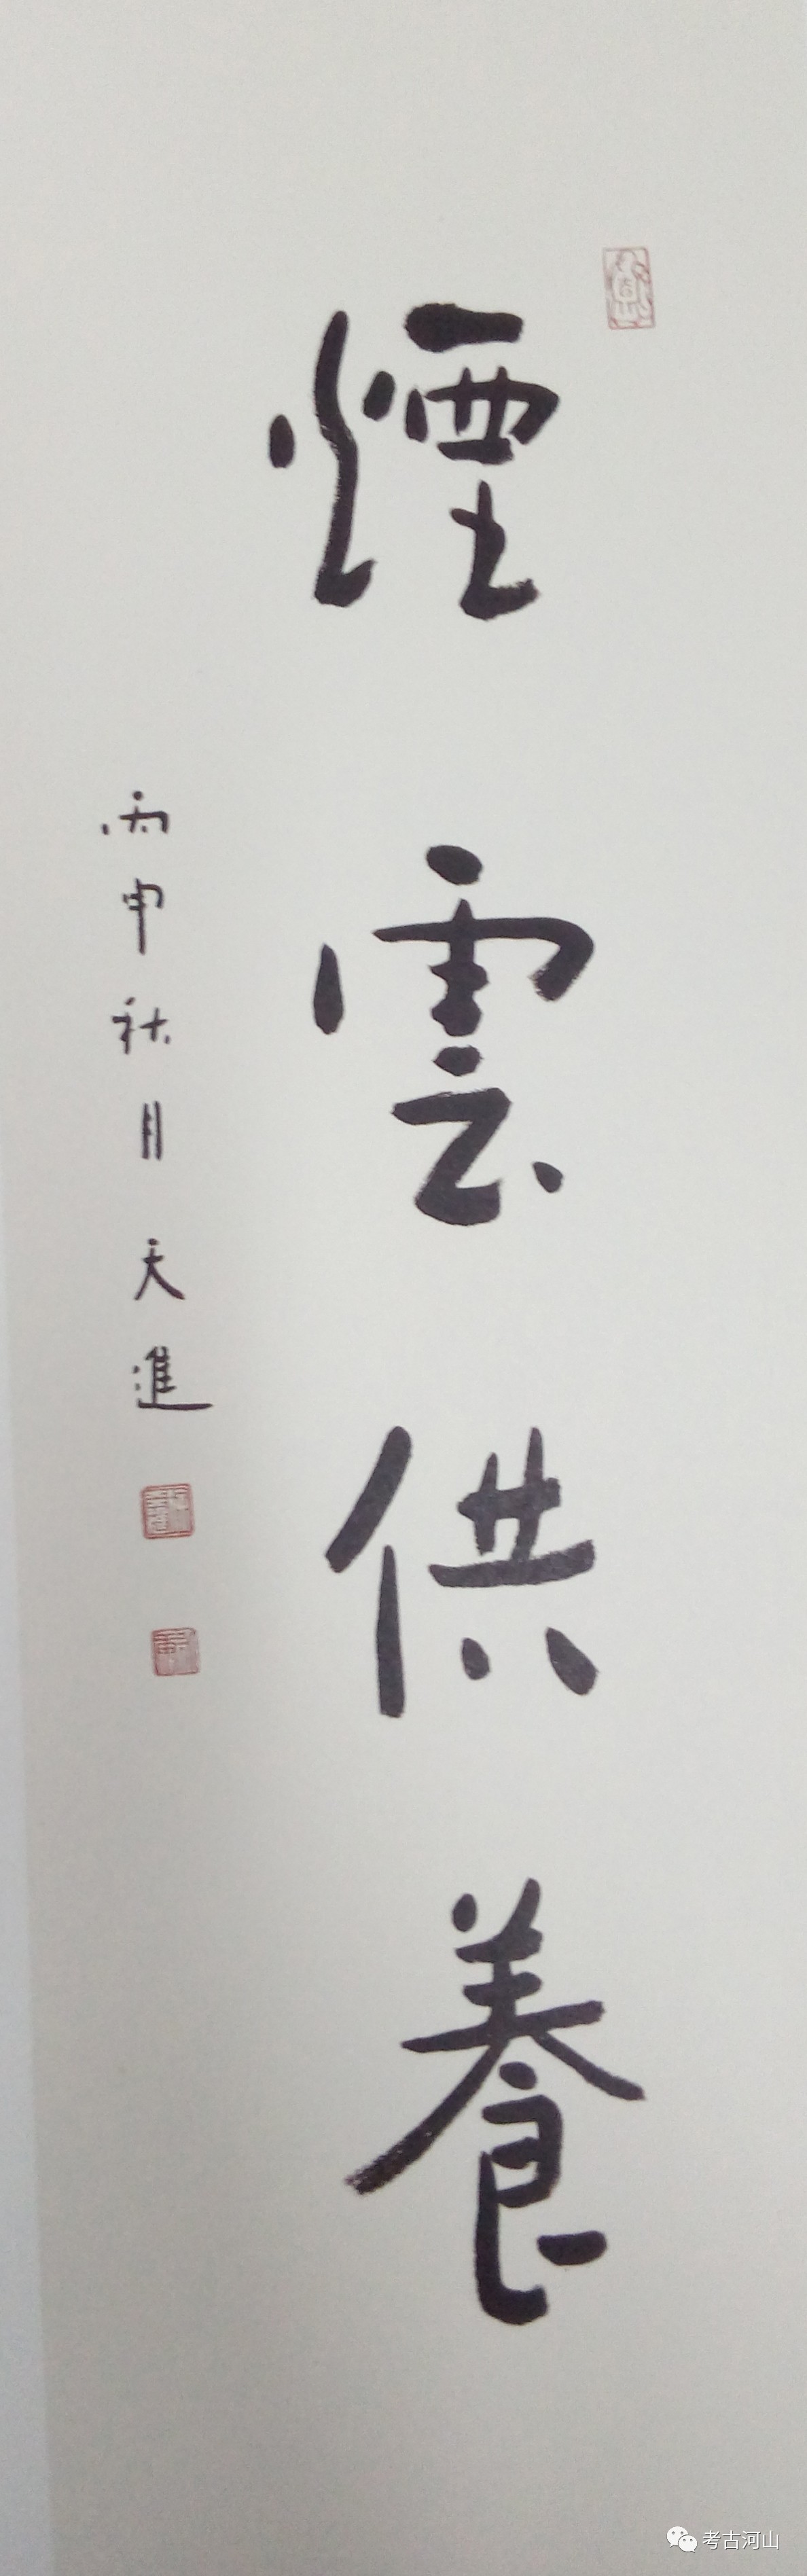 煙雲供養
丙申秋月天進
考古河山